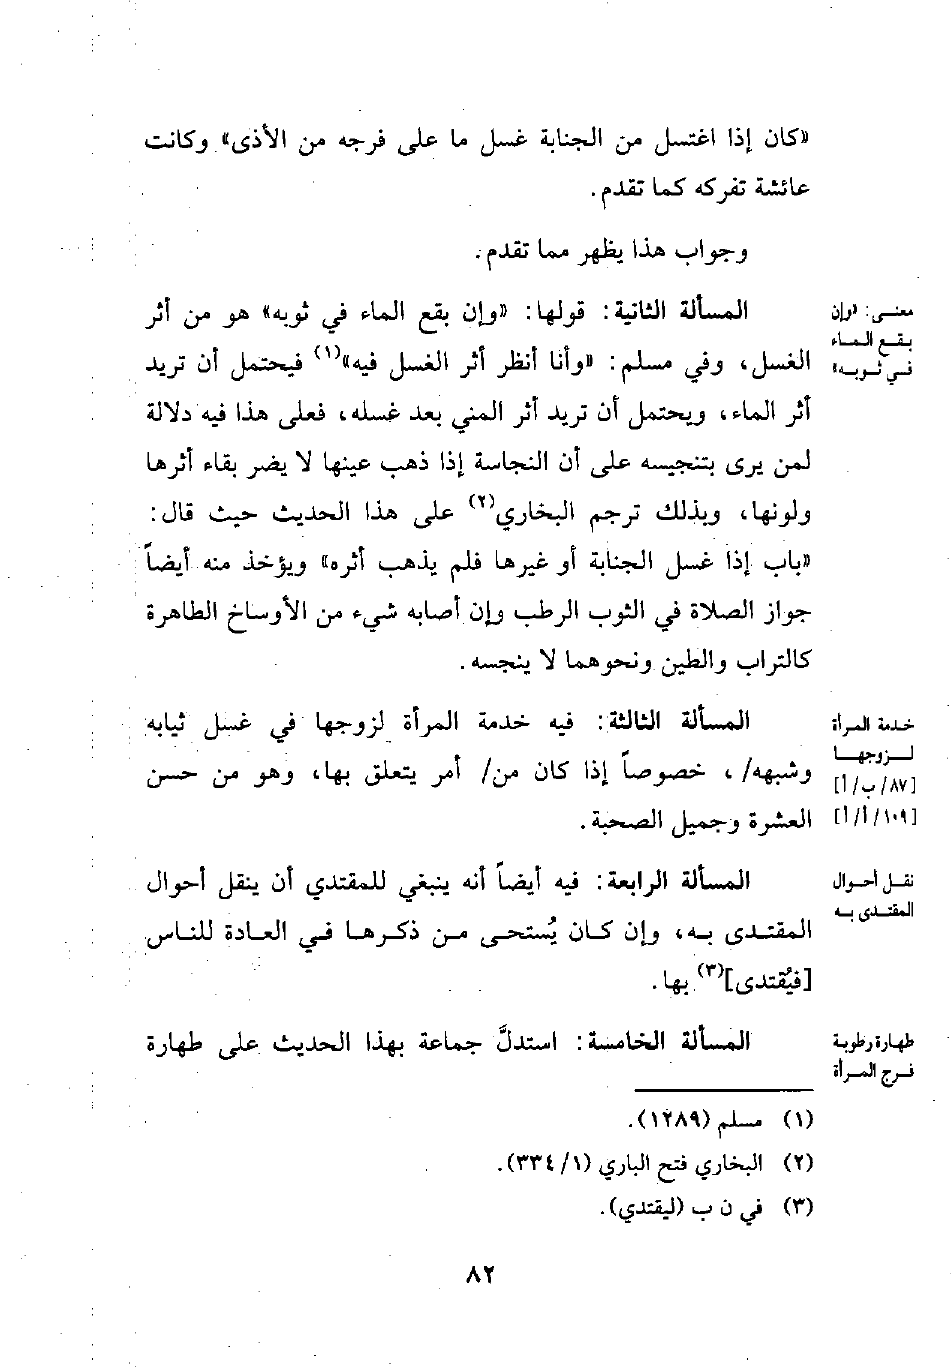 «كان إذا اغتسل من الجنابة غسل ما على فرجه من الأذى» وكانت
عائشة تفركه كما تقدم.
وجواب هذا يظهر مما تقدم.
المسألة الثانية: قولها: «وإن بقع الماء في ثوبه» هو من أثر
الغسل، وفي مسلم: «وأنا أنظر أثر الغسل فيه»(١) فيحتمل أن تريد
أثر الماء، ويحتمل أن تريد أثر المني بعد غسله، فعلى هذا فيه دلالة
لمن يرى بتنجيسه على أن النجاسة إذا ذهب عينها لا يضر بقاء أثرها
ولونها، وبذلك ترجم البخاري(٢) على هذا الحديث حيث قال:
«باب إذا غسل الجنابة أو غيرها فلم يذهب أثره» ويؤخذ منه أيضاً
جواز الصلاة في الثوب الرطب وإن أصابه شيء من الأوساخ الطاهرة
كالتراب والطين ونحوهما لا ينجسه.
المسألة الثالثة: فيه خدمة المرأة لزوجها في غسل ثيابه
وشبهه/، خصوصاً إذا كان من/ أمر يتعلق بها، وهو من حسن
العشرة وجميل الصحبة.
المسألة الرابعة: فيه أيضاً أنه ينبغي للمقتدي أن ينقل أحوال
المقتدى به، وإن كان يُستحى من ذكرها في العادة للناس
[فيُقتدى](٣) بها.
المسألة الخامسة: استدلَّ جماعة بهذا الحديث على طهارة
معنى: «وإن
بقع الماء
في ثوبه»
خدمة المرأة
لزوجها
[٨٧/ب/أ]
[١٠٩/أ/أ]
نقل أحوال
المقتدى به
طهارة رطوبة
فرج المرأة
(١) مسلم (١٢٨٩).
(٢) البخاري فتح الباري (١/ ٣٣٤).
(٣) في ن ب (ليقتدي).
٨٢